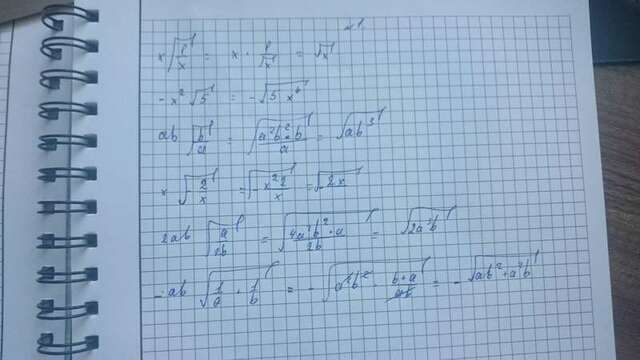 №1
x√(1/x) = x · 1/√x = √x
-x² √5 = -√(5 x⁴)
ab √(b/a) = √(a²b²·b/a) = √(ab³)
x √(-2/x) = √(-x²2/x) = √(-2x)
2ab √(a/2b) = √(4a²b²·a/2b) = √(2a³b)
-ab √(1/a + 1/b) = -√(a²b² · b+a/ab) = -√(ab²+a²b)